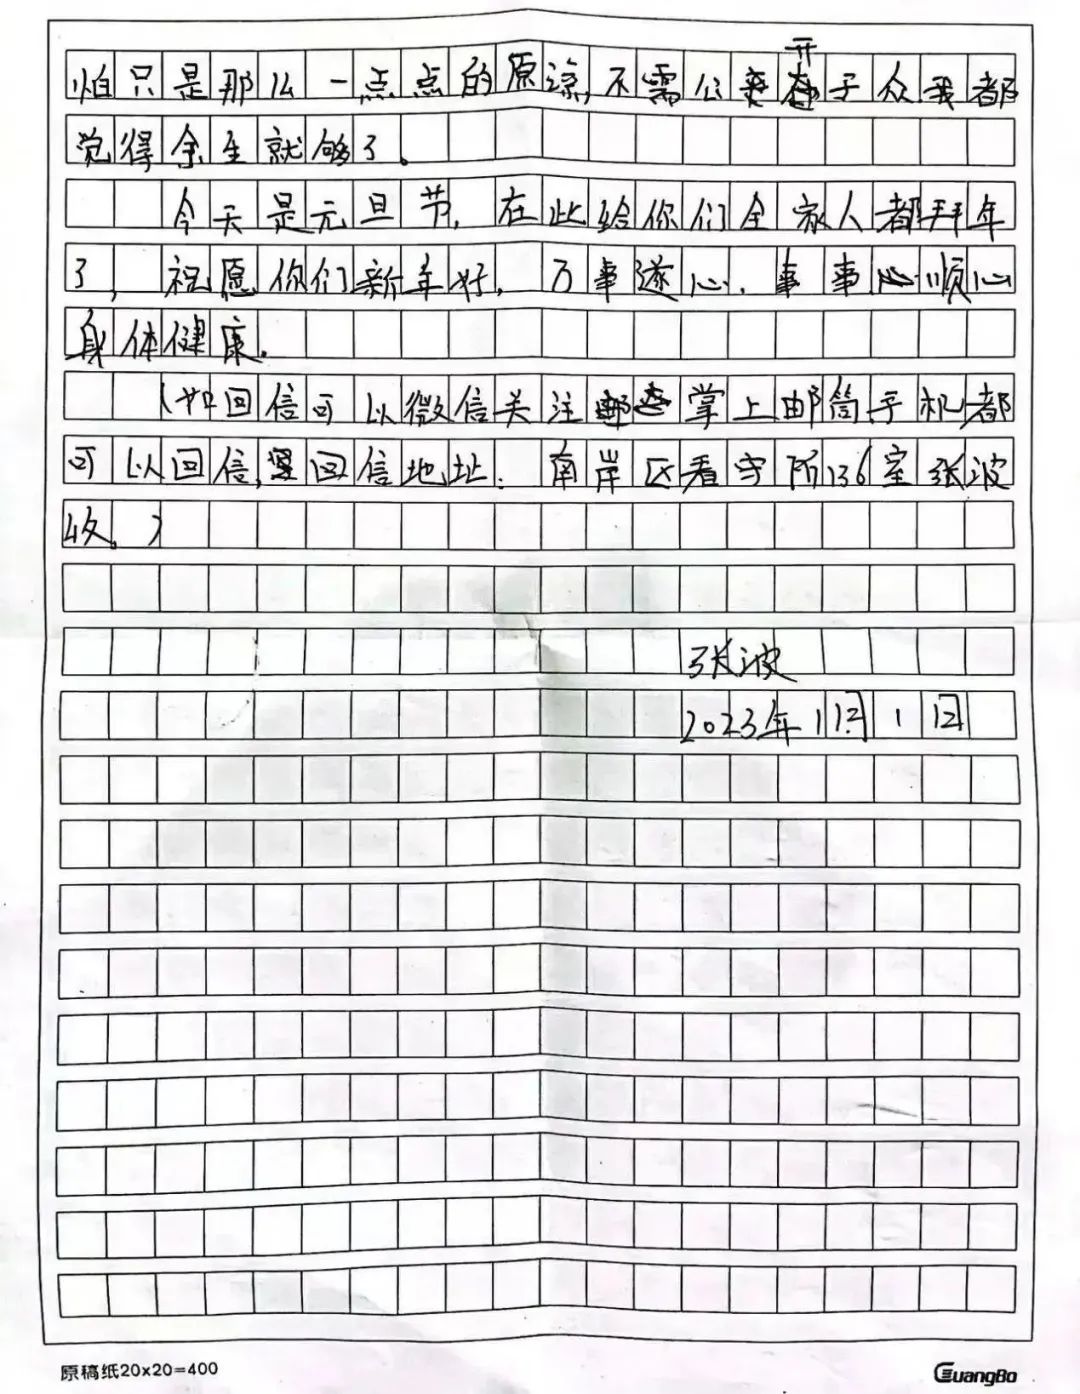 怕只是那么一点点的原谅,不需公开于众我都
觉得余生就够了。
今天是元旦节,在此给你们全家人都拜年
了,祝愿你们新年好,万事遂心,事事顺心
身体健康.
(如回信可以微信关注掌上邮筒手机都
可以回信,回信地址:南岸区看守所136室张波
收。)
张波
2023年1月1日
原稿纸20x20=400
GuangBo